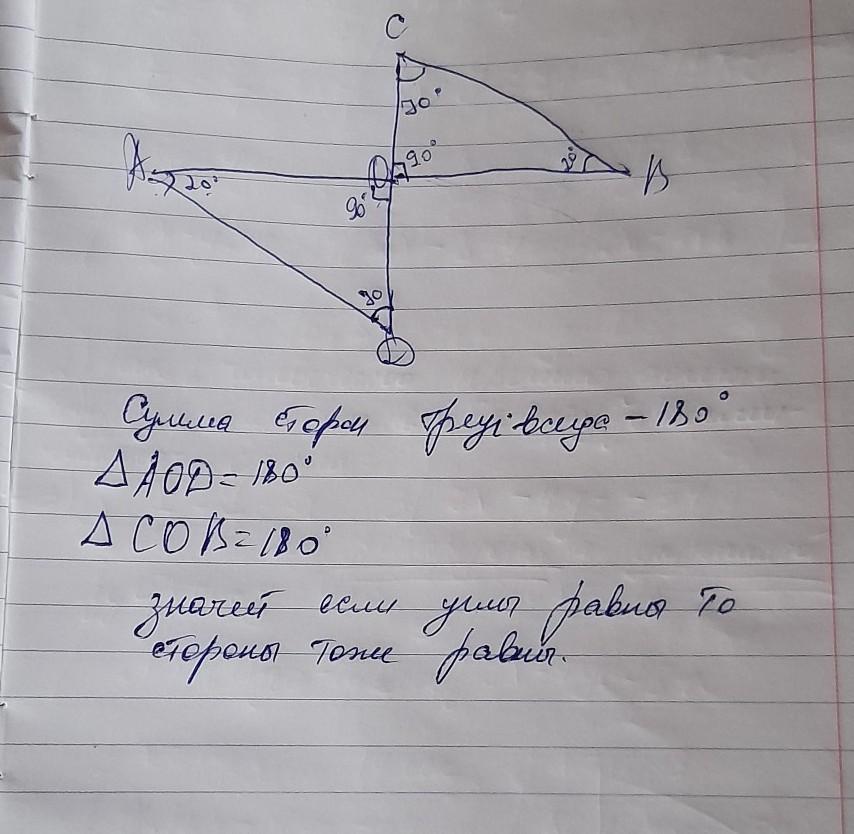 C
70°
90°
O
A
20°
B
90°
70
D
Сумма сторон треуг. всегда – 180°
△AOD = 180°
△COB = 180°
значит если углы равны то
стороны тоже равны.